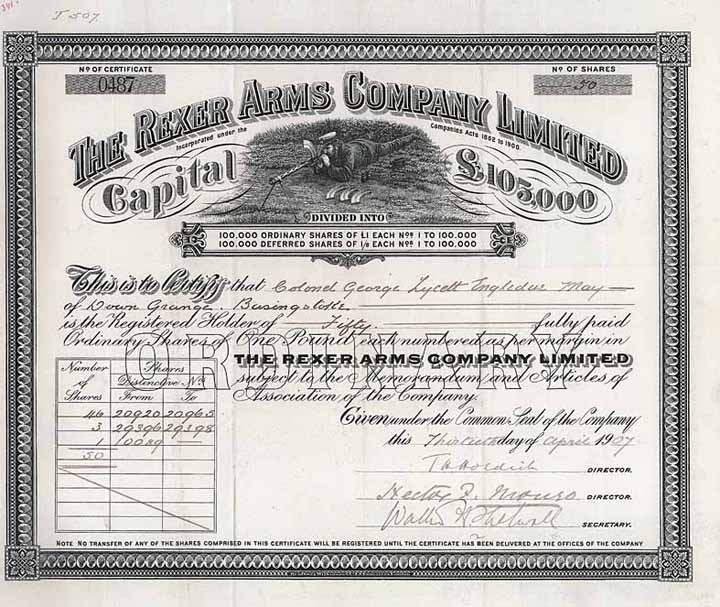 T 507
No OF CERTIFICATE
0487
No OF SHARES
50
THE REXER ARMS COMPANY LIMITED
Incorporated under the Companies Acts 1862 to 1900.
Capital £105,000
DIVIDED INTO
100,000 ORDINARY SHARES OF £1 EACH Nos 1 TO 100,000
100,000 DEFERRED SHARES OF 1/- EACH Nos 1 TO 100,000
This is to Certify that Colonel George Lycett Engledue May
of Down Grange. Basingstoke
is the Registered Holder of Fifty fully paid
Ordinary Shares of One Pound each numbered as per margin in
ORDINARY
THE REXER ARMS COMPANY LIMITED
subject to the Memorandum and Articles of
Association of the Company.
Number of Shares
Shares
Distinctive Nos
From To
46 20920 20965
3 29396 29398
1 10089
50
Given under the Common Seal of the Company
this Thirtieth day of April 1907
DIRECTOR.
Hector F. DIRECTOR.
Walter SECRETARY.
NOTE NO TRANSFER OF ANY OF THE SHARES COMPRISED IN THIS CERTIFICATE WILL BE REGISTERED UNTIL THE CERTIFICATE HAS BEEN DELIVERED AT THE OFFICES OF THE COMPANY